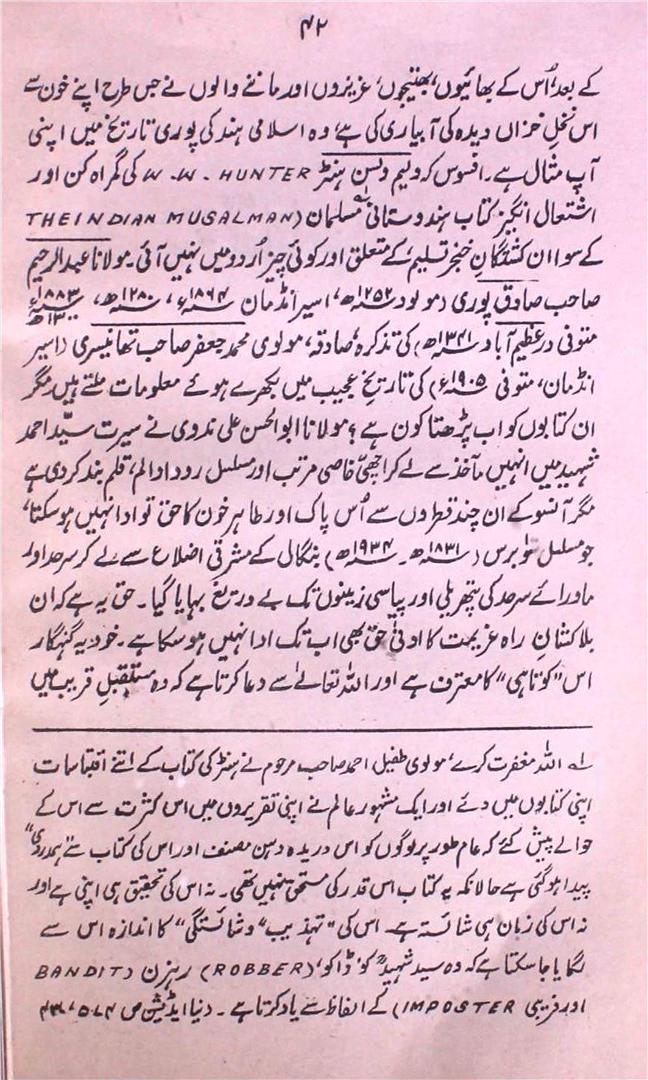 ۴۲
کے بعد، اُس کے بھائیوں، بھتیجوں، عزیزوں اور ماننے والوں نے جس طرح اپنے خون سے
اس نخلِ خزاں دیدہ کی آبیاری کی ہے، وہ اسلامی ہند کی پوری تاریخ میں اپنی
آپ مثال ہے۔ افسوس کہ ولیم ولسن ہنٹر W. W. HUNTER کی گمراہ کن اور
اشتعال انگیز کتاب ہندوستانی مسلمان (THE INDIAN MUSALMAN)
کے سوا ان کشتگانِ خنجرِ تسلیم، کے متعلق اور کوئی چیز اُردو میں نہیں آئی۔ مولانا عبدالرحیم
صاحب صادق پوری (مولود ۱۲۵۲ھ، اسیر انڈمان ۱۸۶۴ء، ۱۲۸۰ھ، ۱۸۸۳ء ۱۳۰۰ھ
متوفی در عظیم آباد ۱۳۴۱ھ) کی تذکرہ صادقہ، مولوی محمد جعفر صاحب تھانیسری (اسیر
انڈمان، متوفی ۱۹۰۵ء) کی تاریخ عجیب میں بکھرے ہوئے معلومات ملتے ہیں مگر
ان کتابوں کو اب پڑھتا کون ہے؟ مولانا ابوالحسن علی ندوی نے سیرت سیّد احمد
شہید میں انہیں مآخذ سے لے کر اچھی خاصی مرتب اور مسلسل روداد الم، قلم بند کردی ہے
مگر آنسو کے ان چند قطروں سے اُس پاک اور طاہر خون کا حق تو ادا نہیں ہوسکتا،
جو مسلسل سو برس (۱۸۳۱ھ۔ ۱۹۳۴ھ) بنگال کے مشرقی اضلاع سے لے کر سرحد اور
ماورائے سرحد کی پتھریلی اور پیاسی زمینوں تک بے دریغ بہایا گیا۔ حق یہ ہے کہ ان
بلاکشانِ راہ عزیمت کا ادنیٰ حق بھی اب تک ادا نہیں ہوسکا ہے۔ خود یہ گنہگار
اس "کوتاہی" کا معترف ہے اور اللہ تعالےٰ سے دعا کرتا ہے کہ وہ مستقبلِ قریب میں
لہ اللہ مغفرت کرے، مولوی طفیل احمد صاحب مرحوم نے ہنٹر کی کتاب کے اتنے اقتباسات
اپنی کتابوں میں دئے اور ایک مشہور عالم نے اپنی تقریروں میں اس کثرت سے اس کے
حوالے پیش کئے کہ عام طور پر لوگوں کو اس دریدہ دہن مصنف اور اس کی کتاب سے ہمدردی"
پیدا ہوگئی ہے حالانکہ یہ کتاب اس قدر کی مستحق نہیں تھی۔ نہ اس کی تحقیق ہی اپنی ہے اور
نہ اس کی زبان ہی شائستہ ہے۔ اس کی "تہذیب" و شائستگی" کا اندازہ اس سے
لگایا جاسکتا ہے کہ وہ سید شہیدؒ کو 'ڈاکو' (ROBBER) رہزن (BANDIT
اور فریبی IMPOSTER) کے الفاظ سے یاد کرتا ہے۔ دنیا ایڈیشن ص